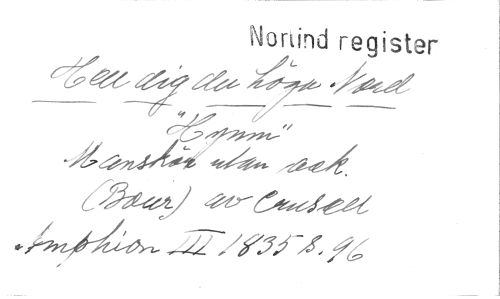 Norlind register
Hell dig du höga Nord
"Hymn"
Manskör utan ack.
(Bour) av Crusell
Amphion III 1835 s. 96